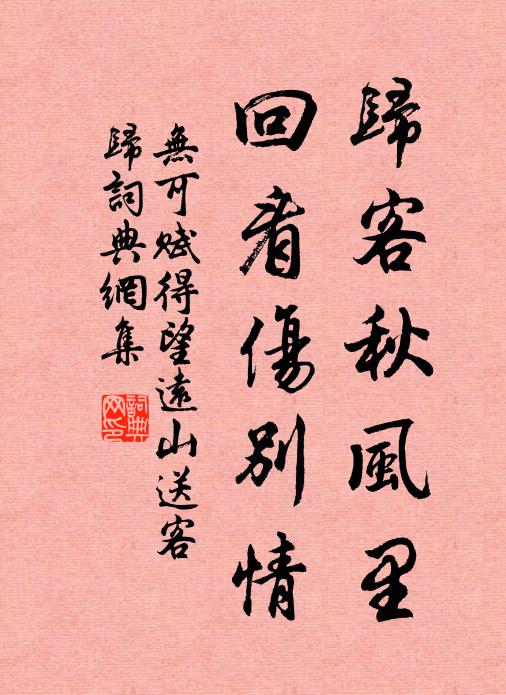 歸客秋風里
回看傷別情
無可賦得望遠山送客
歸詞典網集
詞典
网印